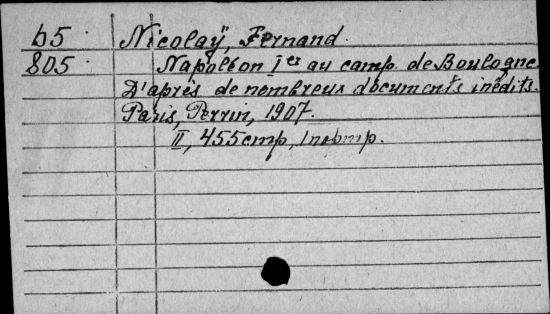 b5 Nicolaÿ, Fernand.
805 Napoléon Ier au camp de Boulogne
D'après de nombreux documents inédits.
Paris, Perrin, 1907.
II, 455